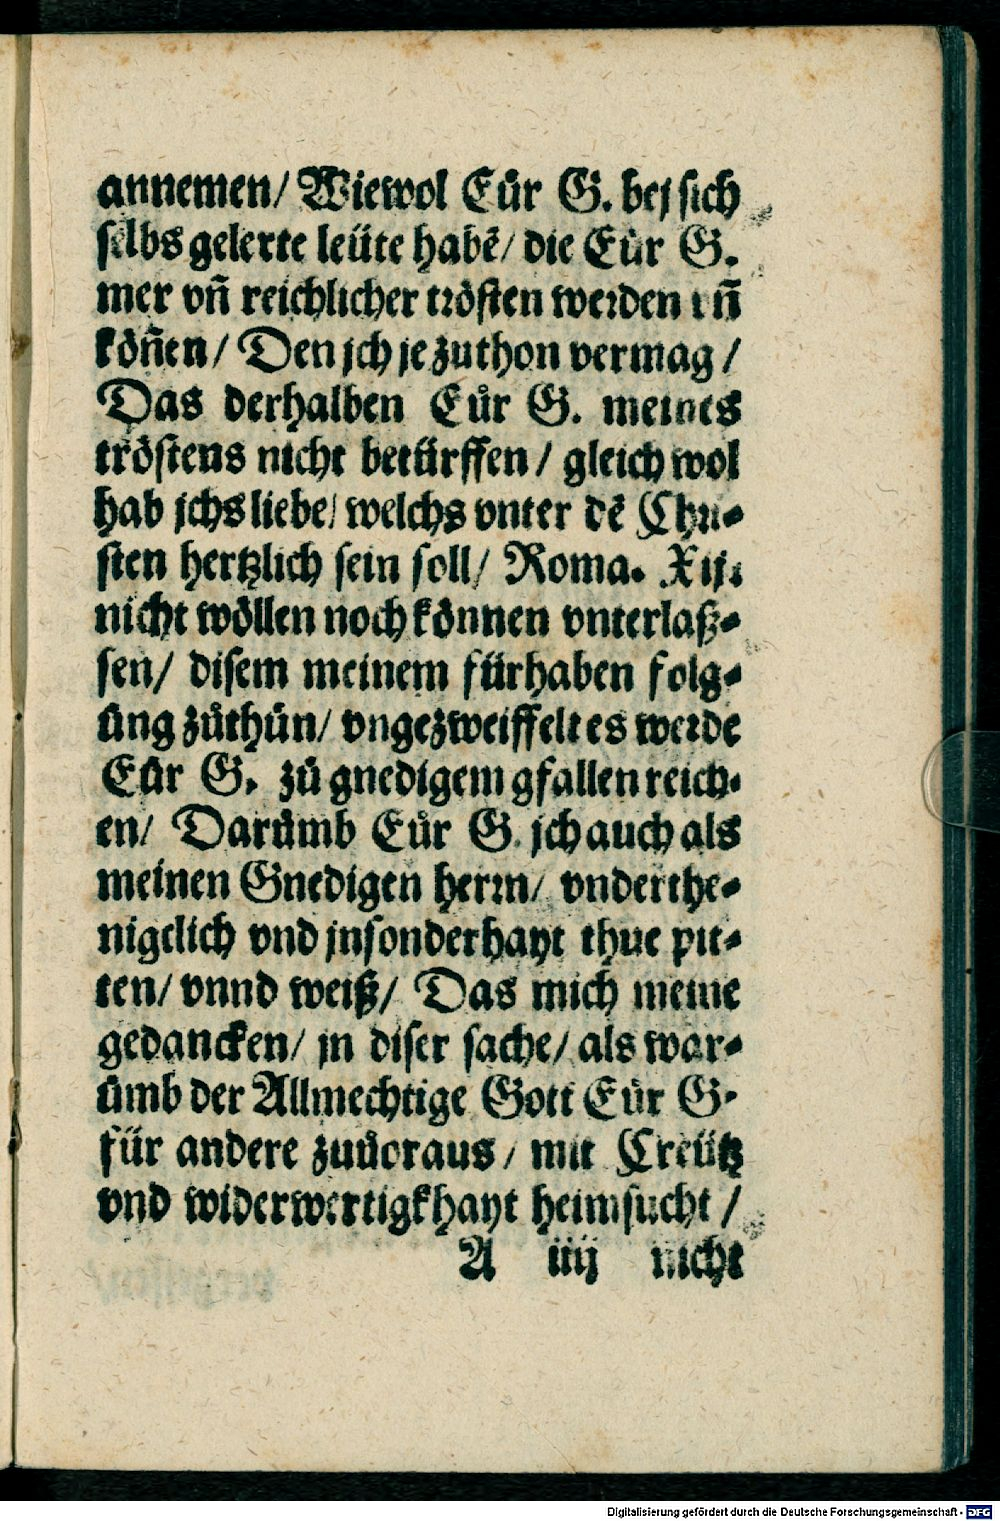 annemen/ Wiewol Eůr G. bej sich
selbs gelerte leüte habē/ die Eůr G.
mer vñ reichlicher trösten werden vñ
köñen/ Den jch je zuthon vermag /
Das derhalben Eůr G. meines
tröstens nicht betürffen / gleich wol
hab jchs liebe/ welchs vnter dē Chri-
sten hertzlich sein soll/ Roma. Xij.
nicht wöllen noch können vnterlaß-
sen/ disem meinem fürhaben folg-
ůng zůthůn/ vngezweiffelt es werde
Eůr G. zů gnedigem gfallen reich-
en/ Darůmb Eůr G. jch auch als
meinen Gnedigen herrn/ vnderthe-
nigclich vnd jnsonderhayt thue pit-
ten/ vnnd weiß/ Das mich meine
gedancken/ jn diser sache/ als war-
ůmb der Allmechtige Gott Eůr G.
für andere zuůoraus / mit Creütz
vnd widerwertigkhayt heimsucht /
A iiij nicht
Digitalisierung gefördert durch die Deutsche Forschungsgemeinschaft - DFG